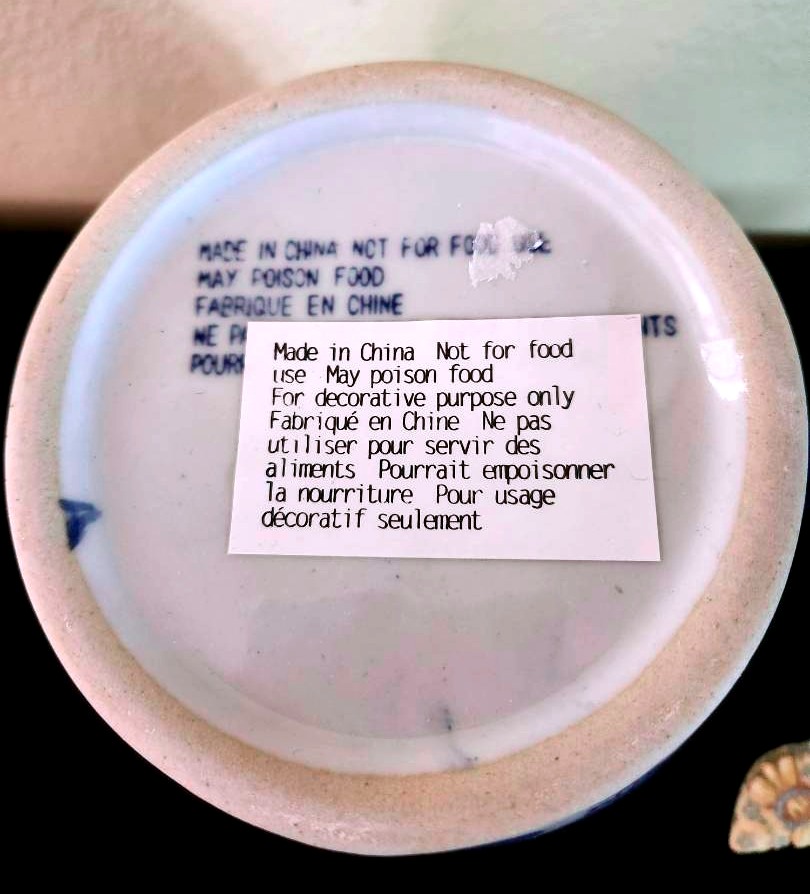 MADE IN CHINA NOT FOR FOOD USE
MAY POISON FOOD
FABRIQUE EN CHINE
NE
Made in China Not for food
use May poison food
For decorative purpose only
Fabriqué en Chine Ne pas
utiliser pour servir des
aliments Pourrait empoisonner
la nourriture Pour usage
décoratif seulement